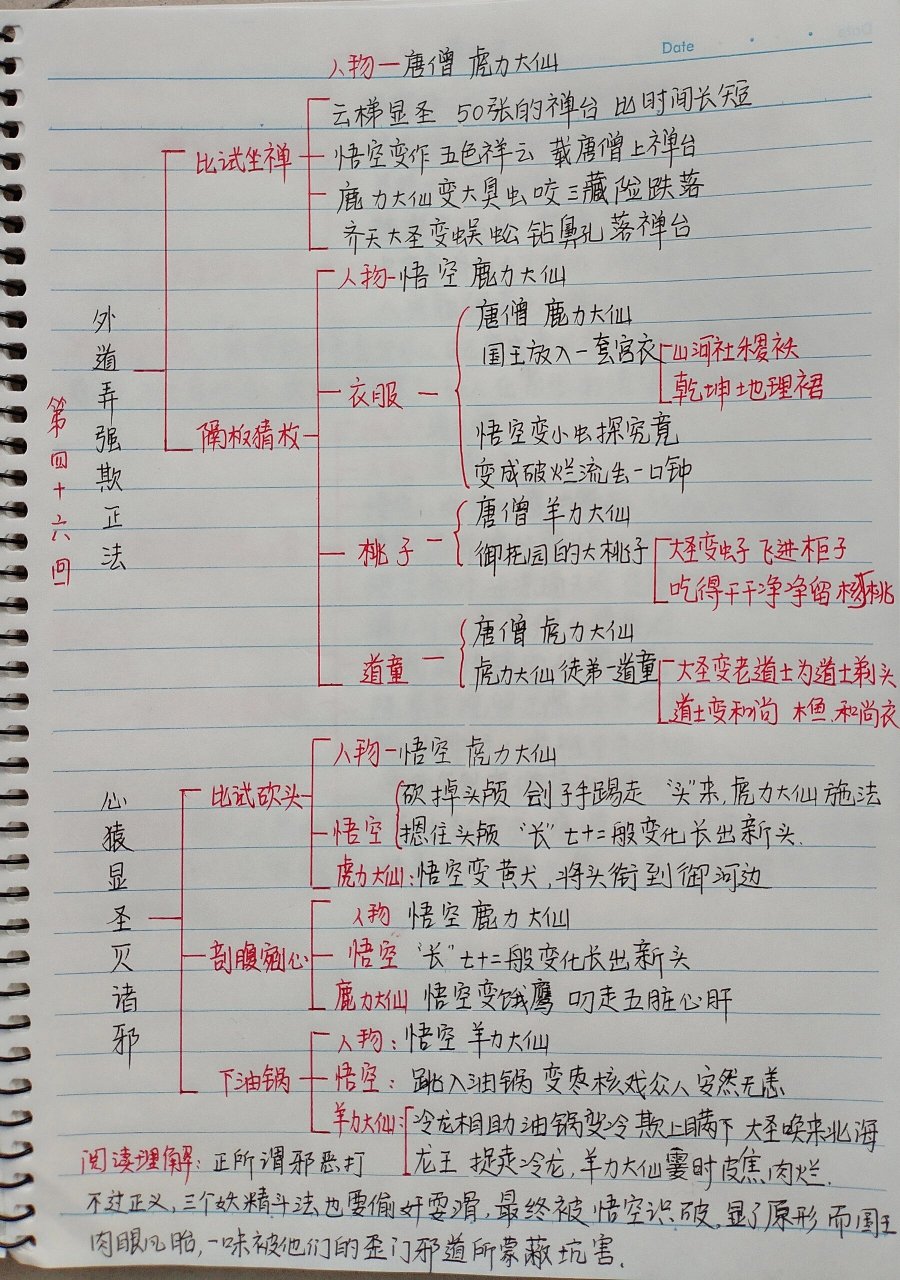 Date
人物一唐僧 虎力大仙
云梯显圣 50张的禅台 比时间长短
比试坐禅
悟空变作五色祥云 载唐僧上禅台
鹿力大仙变大臭虫咬三藏险跌落
齐天大圣变蜈蚣钻鼻孔落禅台
第四十六回
外道弄强欺正法
隔板猜枚
人物-悟空 鹿力大仙
衣服
唐僧 鹿力大仙
国王放入一套宫衣
山河社稷袄
乾坤地理裙
悟空变小虫探究竟
变成破烂流丢一口钟
桃子
唐僧 羊力大仙
御花园的大桃子
大圣变虫子飞进柜子
吃得干干净净留核桃
道童
唐僧 虎力大仙
虎力大仙徒弟一道童
大圣变老道士为道士剃头
道士变和尚 木鱼.和尚衣
心猿显圣灭诸邪
比试砍头
人物一悟空 虎力大仙
悟空
砍掉头颅 刽子手踢走 "头"来,虎力大仙施法
摁住头颅 "长"七十二般变化长出新头.
虎力大仙:悟空变黄犬,将头衔到御河边
剖腹剜心
人物 悟空 鹿力大仙
悟空 "长"七十二般变化长出新头
鹿力大仙 悟空变饿鹰 叨走五脏心肝
下油锅
人物:悟空 羊力大仙
悟空: 跳入油锅 变枣核戏众人安然无恙
羊力大仙:冷龙相助油锅变冷欺上瞒下 大圣唤来北海
龙王 捉走冷龙,羊力大仙霎时皮焦肉烂.
阅读理解:正所谓邪恶打
不过正义,三个妖精斗法也要偷奸耍滑,最终被悟空识破,显了原形而国王
肉眼凡胎,一味被他们的歪门邪道所蒙蔽坑害.